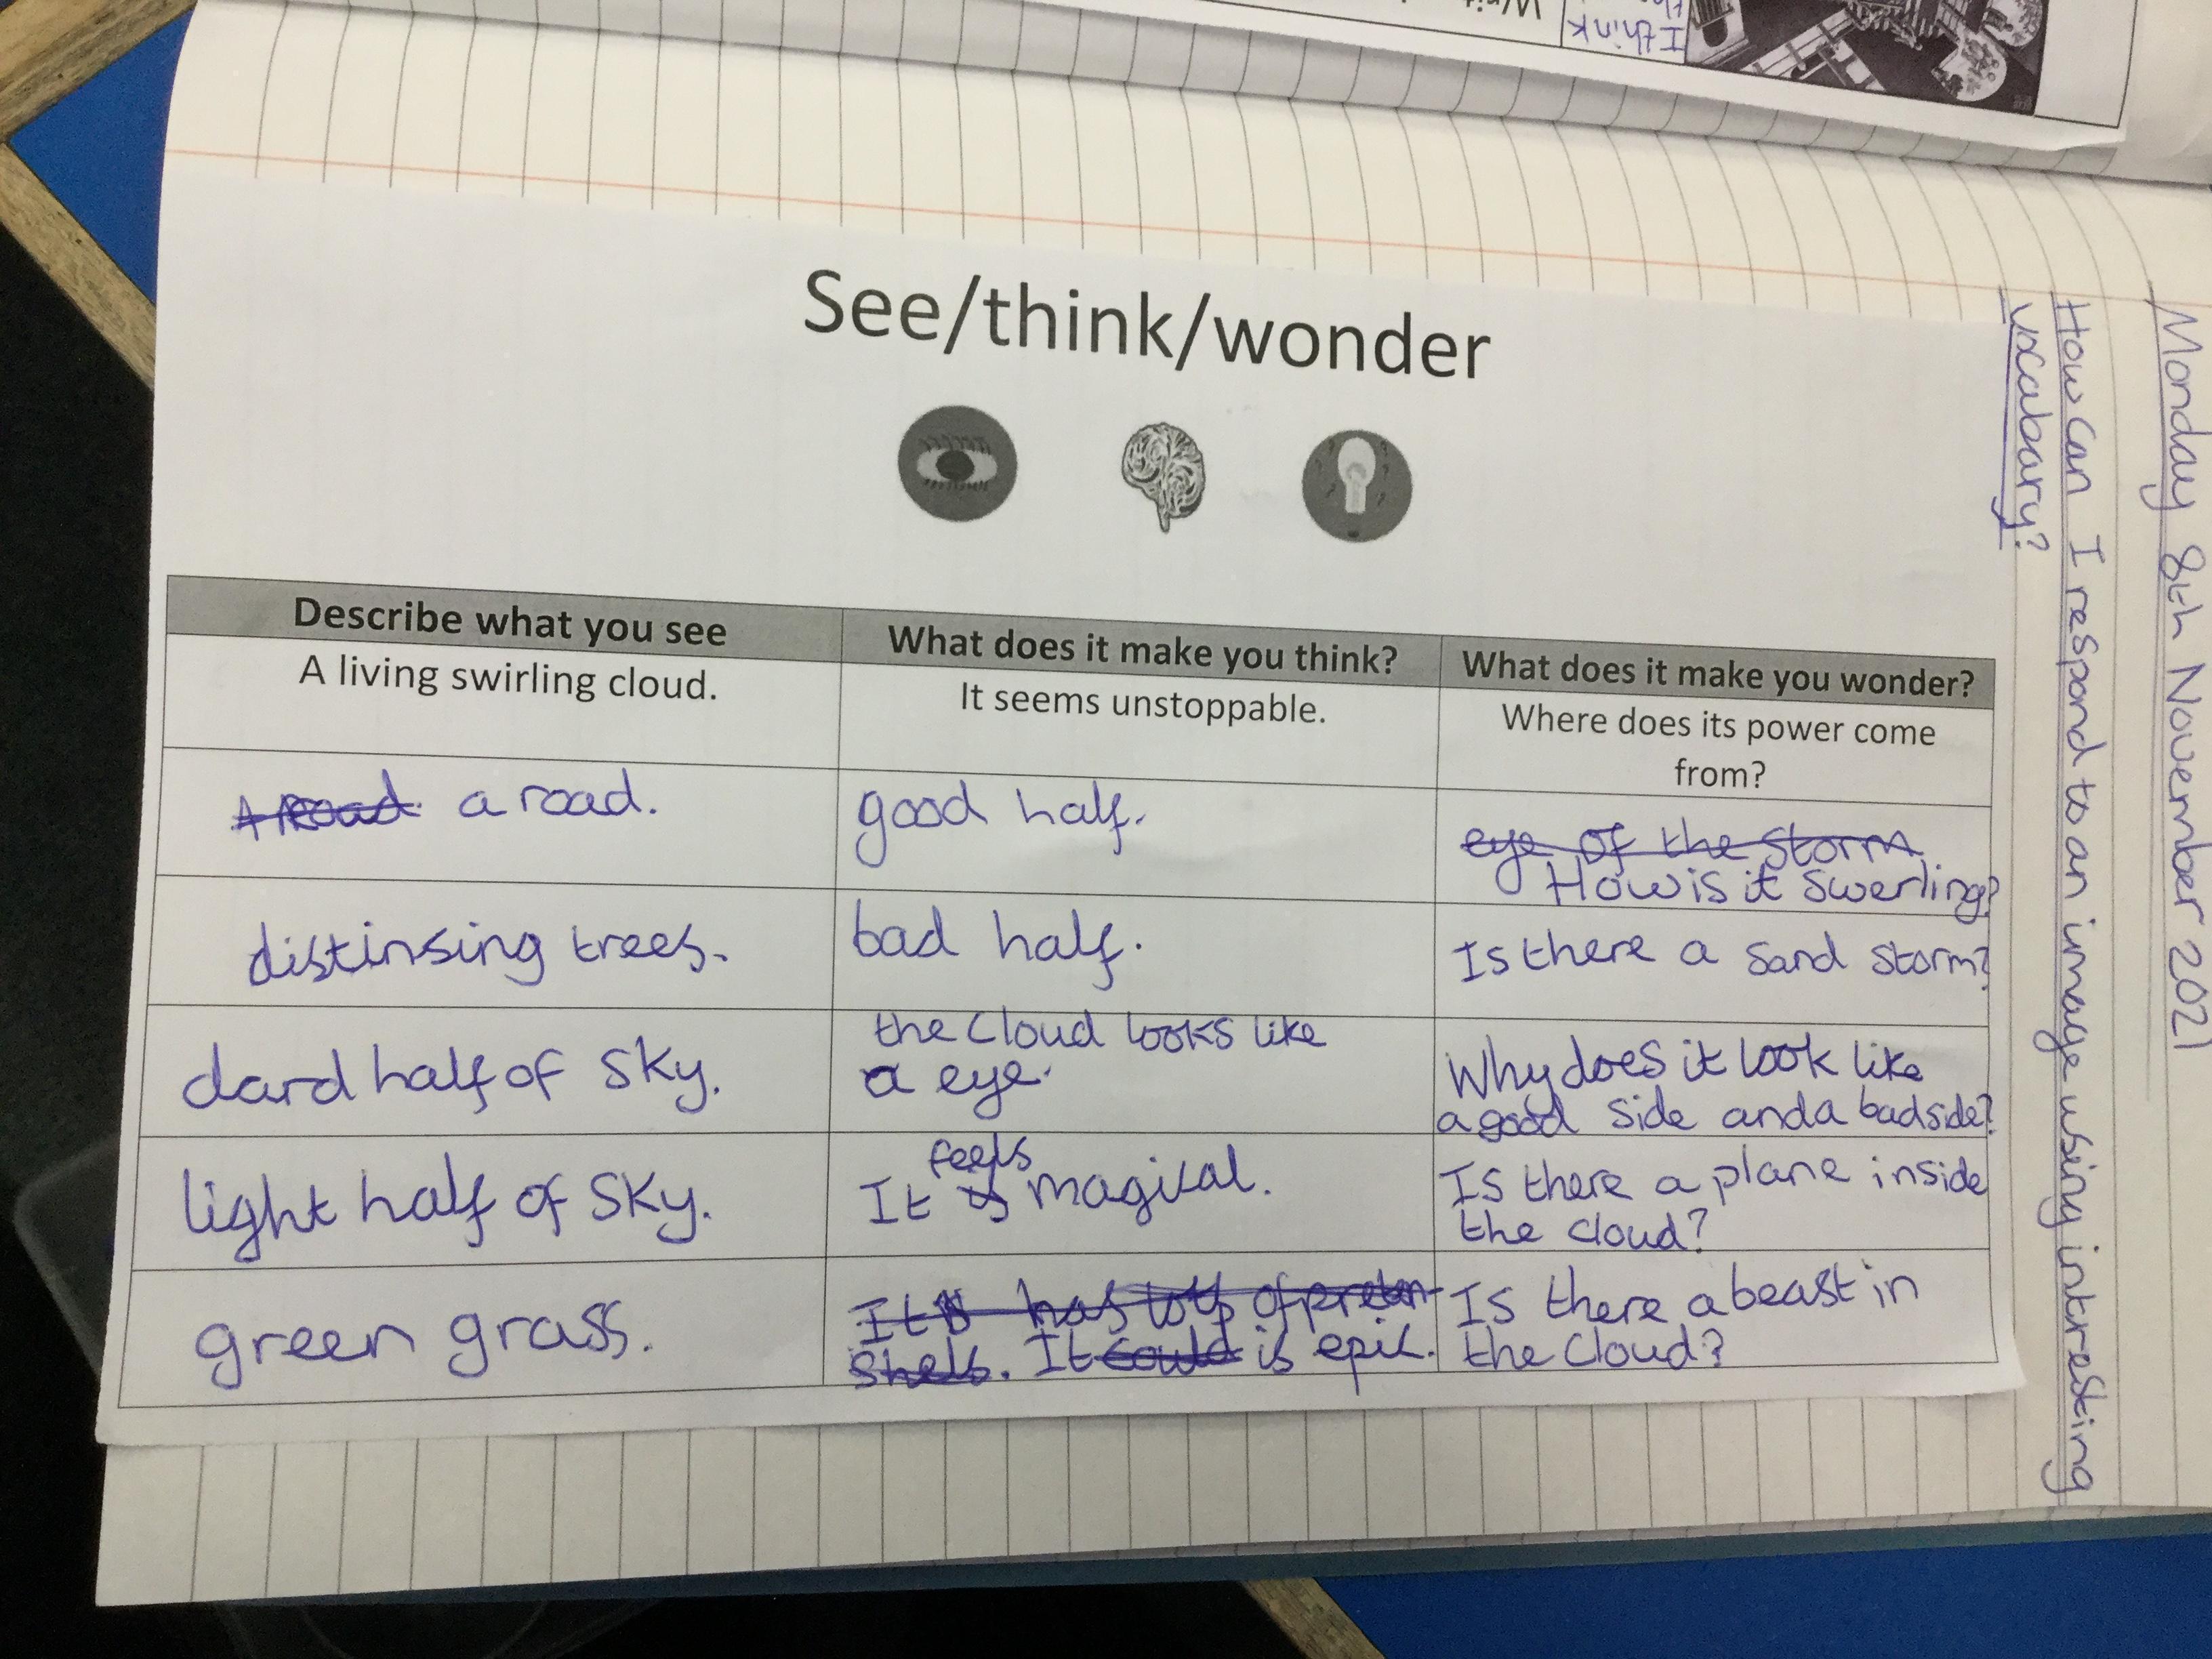 Monday 8th November 2021
How can I respond to an image using intresting
vocabary?
See/think/wonder
Describe what you see
What does it make you think?
What does it make you wonder?
A living swirling cloud.
It seems unstoppable.
Where does its power come
from?
A Road. a road.
good half.
eye of the storm.
How is it swerling?
distinsing trees.
bad half.
Is there a sand storm?
dard half of sky.
the cloud looks like
a eye.
Why does it look like
a good side and a bad side?
light half of sky.
feels
It is magical.
Is there a plane inside
the cloud?
green grass.
It is has lots of
It could is epic.
Is there a beast in
the cloud?
I think